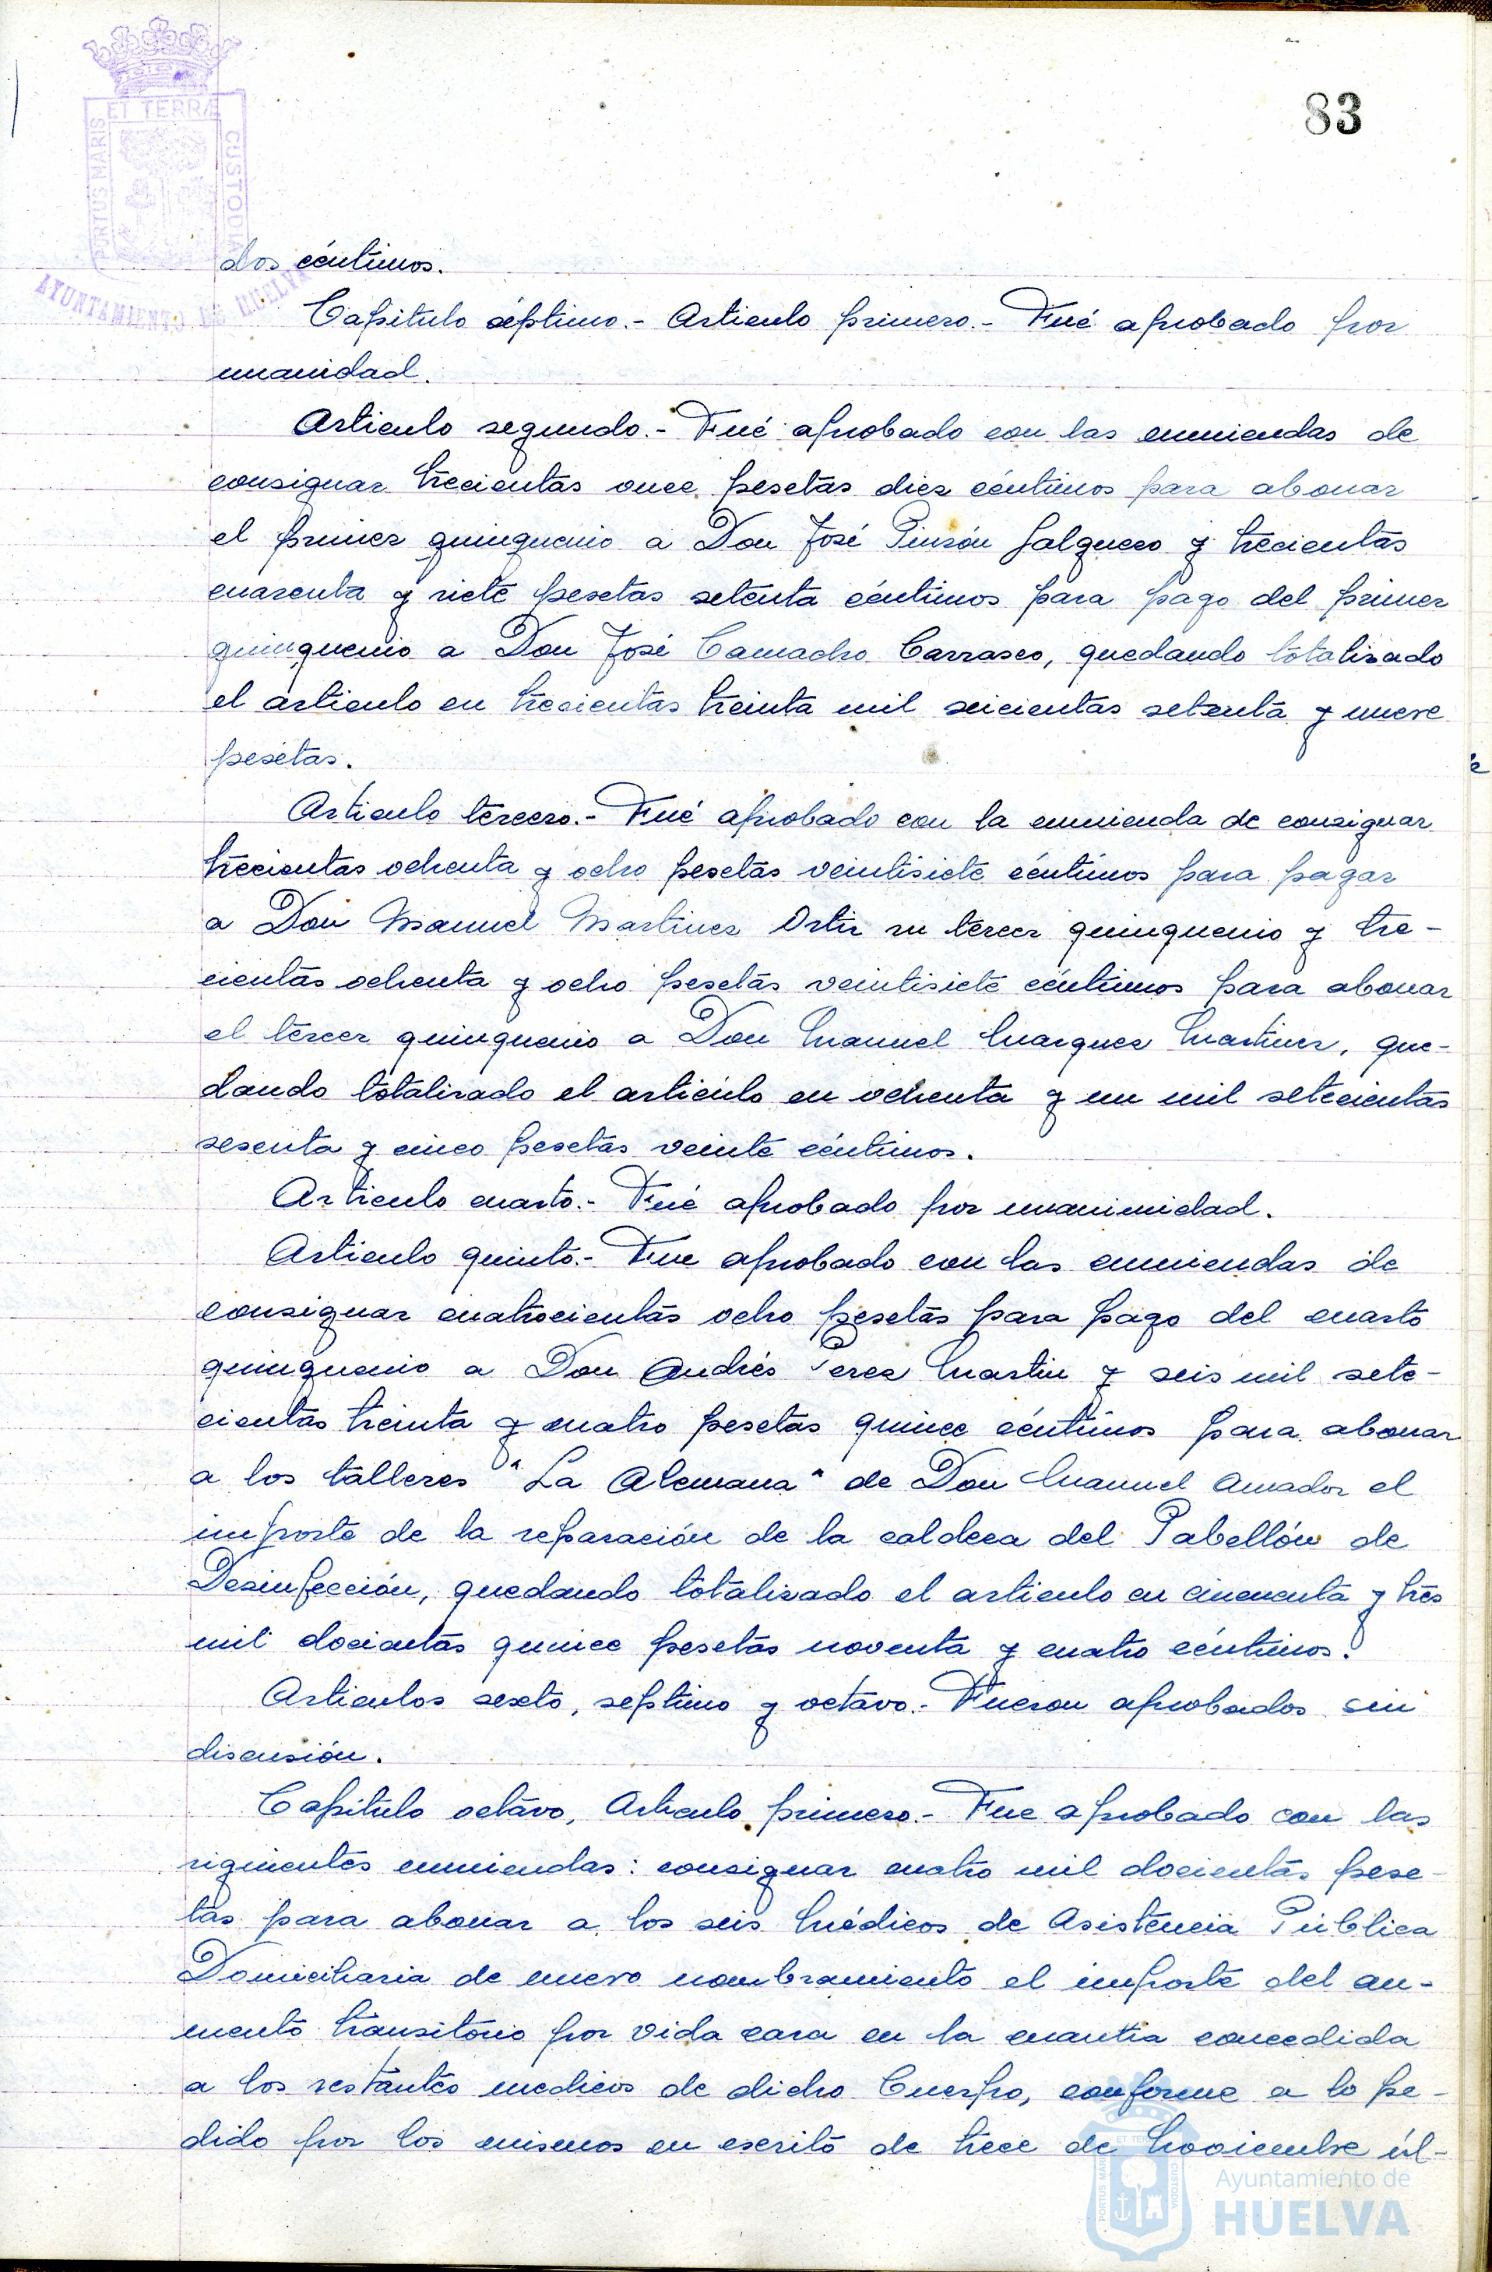 83
PORTUS MARIS ET TERRÆ CUSTODIA
AYUNTAMIENTO DE HUELVA
dos céntimos.
Capitulo séptimo.- Articulo primero.- Fué aprobado por
unanidad.
Articulo segundo.- Fué aprobado con las enmiendas de
consignar trecientas once pesetas diez céntimos para abonar
el primer quinquenio a Don José Pinzón Salguero y trecientas
cuarenta y siete pesetas setenta céntimos para pago del primer
quinquenio a Don José Camacho Carrasco, quedando totalizado
el articulo en trecientas treinta mil seicientas setenta y nueve
pesetas.
Articulo tercero.- Fué aprobado con la enmienda de consignar
trecientas ochenta y ocho pesetas veintisiete céntimos para pagar
a Don Manuel Martinez Ortiz su tercer quinquenio y tre-
cientas ochenta y ocho pesetas veintisiete céntimos para abonar
el tercer quinquenio a Don Manuel Marquez Martinez, que-
dando totalizado el articulo en ochenta y un mil setecientas
sesenta y cinco pesetas veinte céntimos.
Articulo cuarto.- Fué aprobado por unanimidad.
Articulo quinto.- Fue aprobado con las enmiendas de
consignar cuatrocientas ocho pesetas para pago del cuarto
quinquenio a Don Andrés Perez Martin y seis mil sete-
cientas treinta y cuatro pesetas quince céntimos para abonar
a los talleres "La Alemana" de Don Manuel Amador el
importe de la reparación de la caldera del Pabellón de
Desinfección, quedando totalizado el articulo en cincuenta y tres
mil docientas quince pesetas noventa y cuatro céntimos.
Articulos sexto, septimo y octavo.- Fueron aprobados sin
discusión.
Capitulo octavo, Articulo primero.- Fue aprobado con las
siguientes enmiendas: consignar cuatro mil docientas pese-
tas para abonar a los seis Médicos de Asistencia Pública
Domiciliaria de nuevo nombramiento el importe del au-
mento transitorio por vida cara en la cuantia concedida
a los restantes medicos de dicho Cuerpo, conforme a lo pe-
dido por los mismos en escrito de trece de Noviembre úl-
Ayuntamiento de
HUELVA